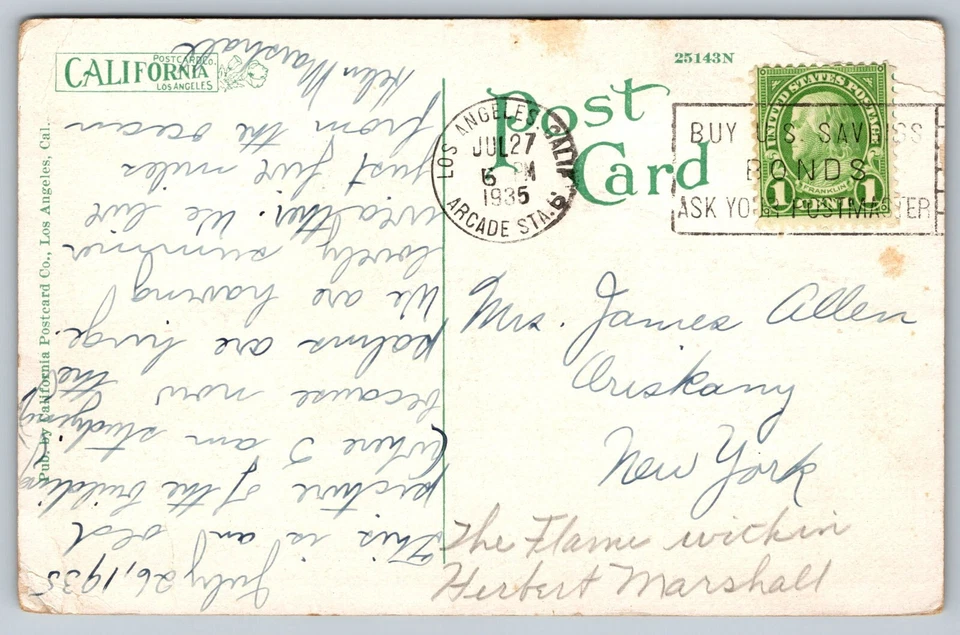 CALIFORNIA
POSTCARD CO.
LOS ANGELES
Pub. by California Postcard Co., Los Angeles, Cal.
25143N
Post
Card
LOS ANGELES, CALIF.
JUL 27
5 PM
1935
ARCADE STA.
BUY U.S. SAVINGS
BONDS
ASK YOUR POSTMASTER
UNITED STATES POSTAGE
FRANKLIN
1 CENT 1
July 26, 1935
This is an old
picture of the building
(where I am studying)
because now the
palms are huge.
We are having
lovely summer
weather. We live
just five miles
from the ocean
Helen Marshall
Mrs. James Allen
Oriskany
New York
The Flame within
Herbert Marshall